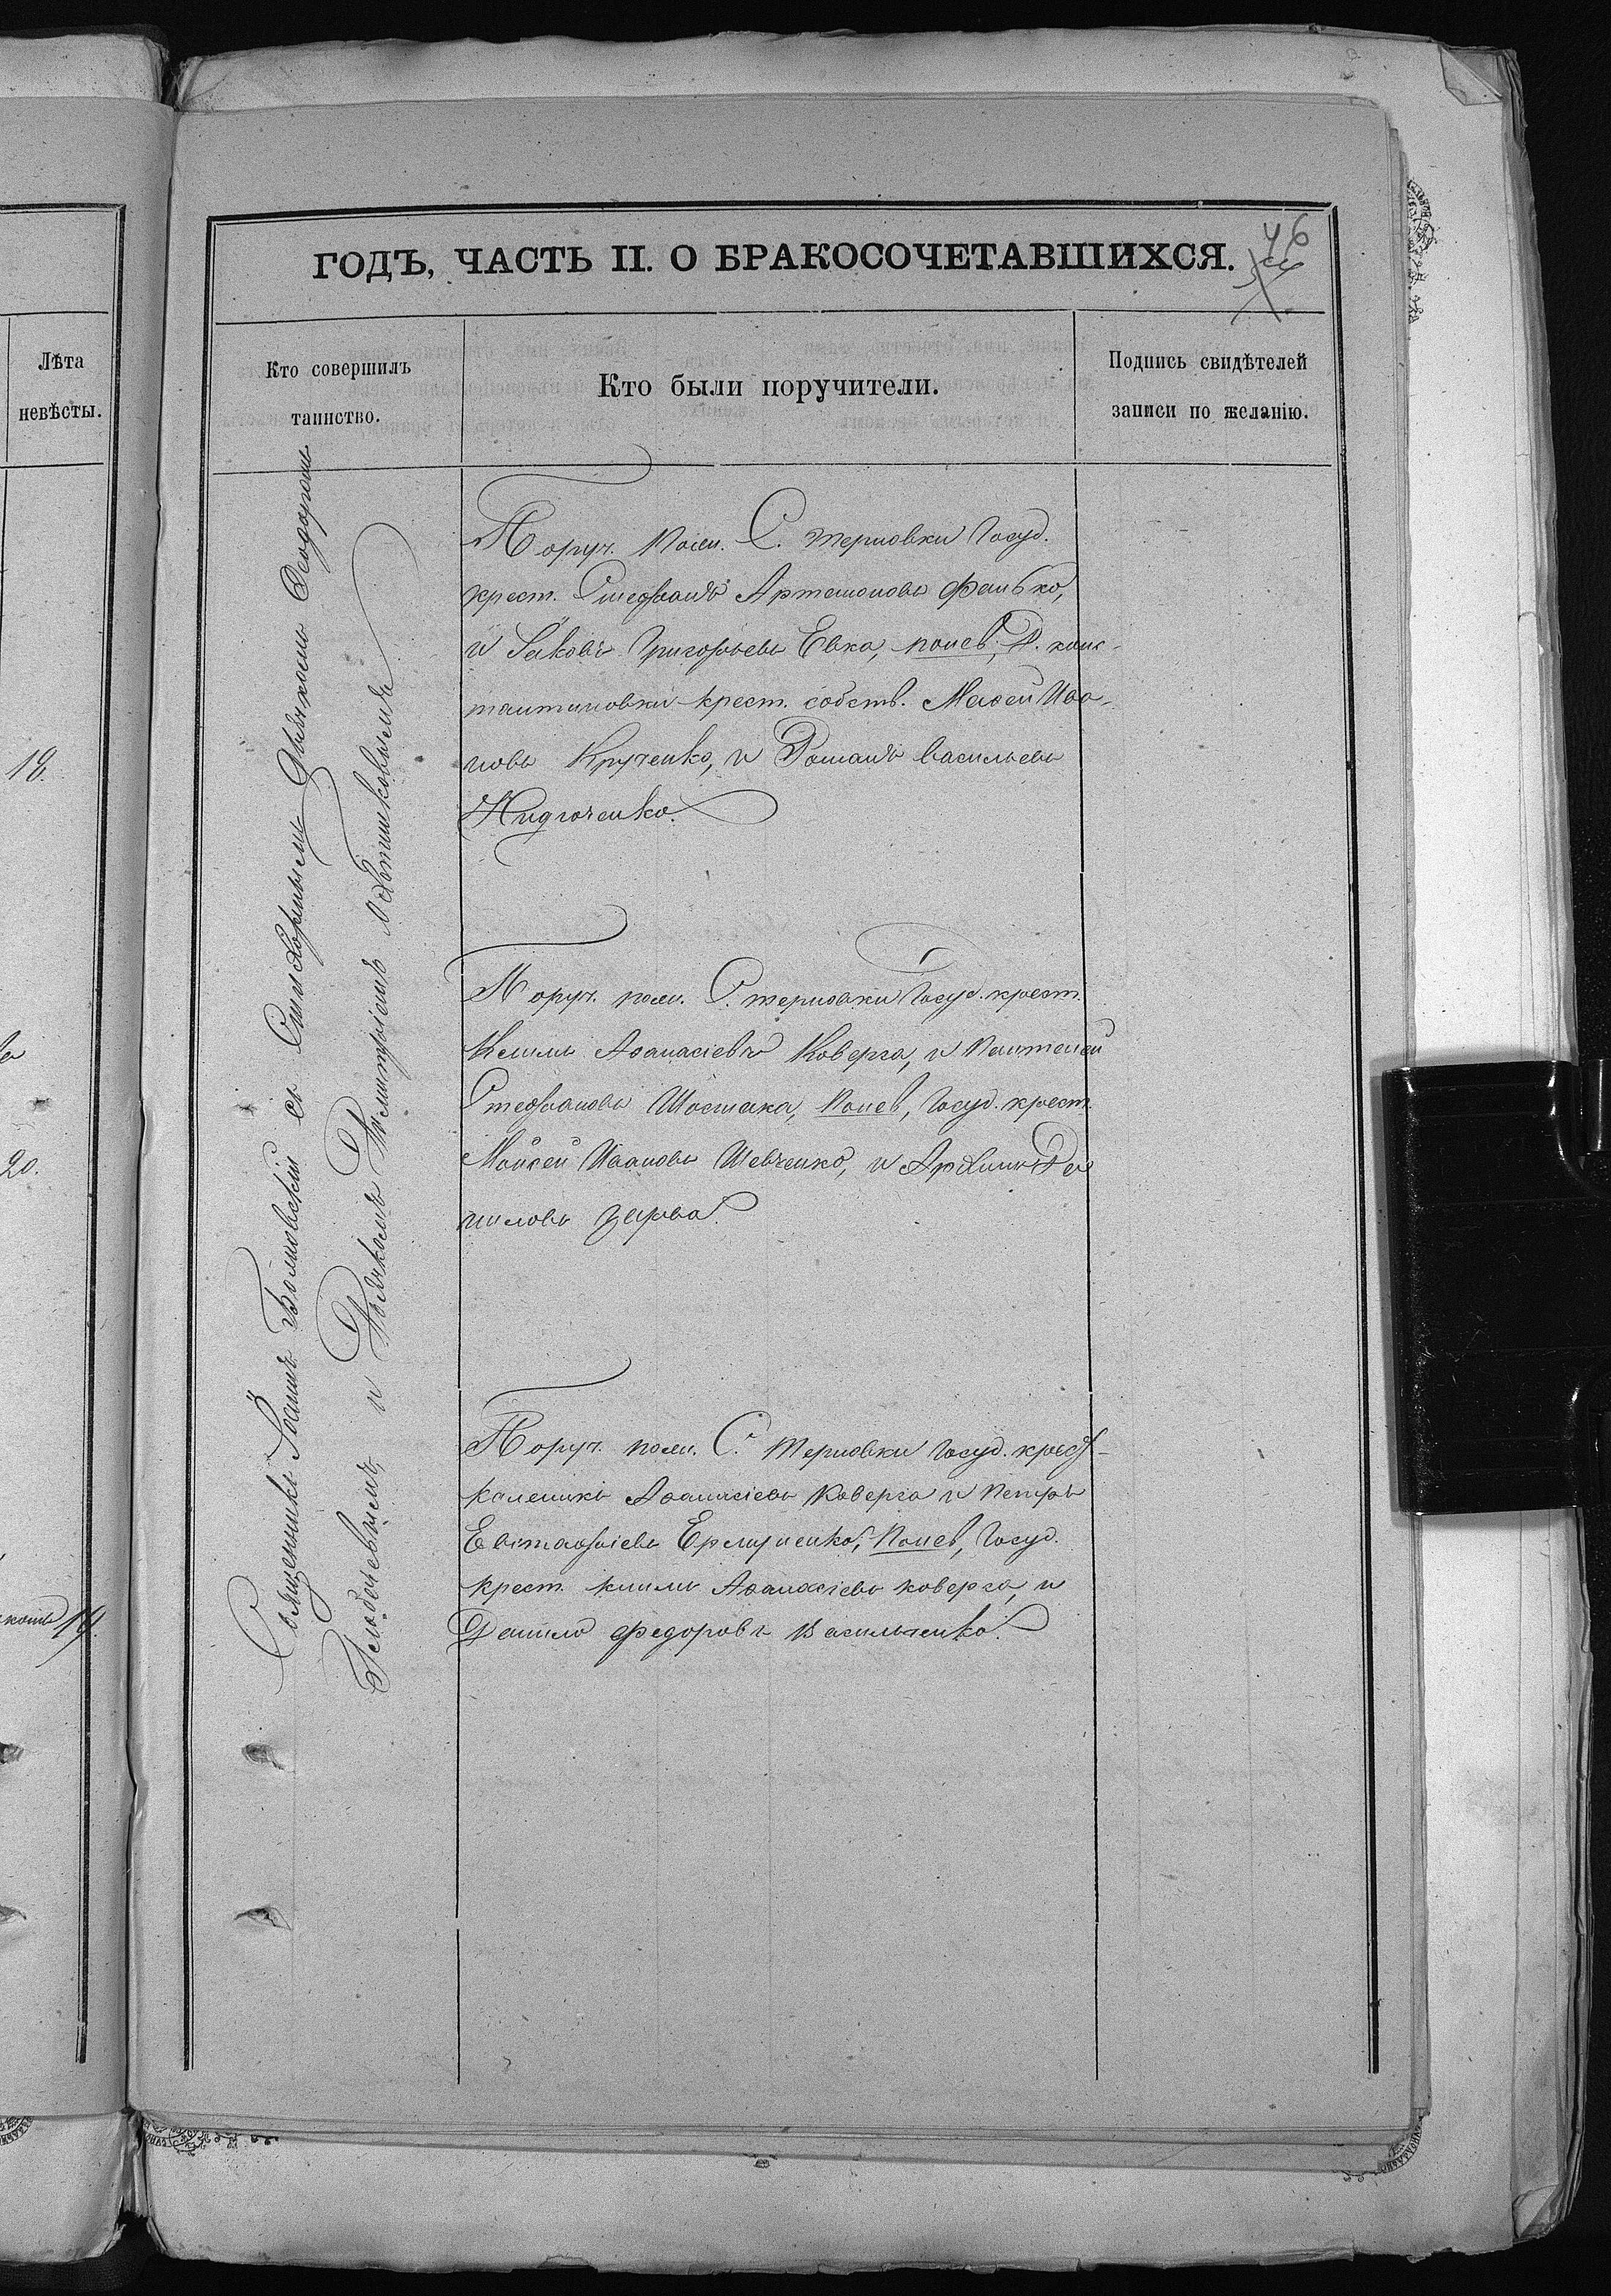 Лѣта
невѣсты.
18.
20.
19.
ГОДЪ, ЧАСТЬ II. О БРАКОСОЧЕТАВШИХСЯ.
46
Кто совершилъ
таинство.
Кто были поручители.
Подпись свидѣтелей
записи по желанію.
Священникъ Іоаннъ с Стихарнымъ Дьячкомъ Ѳеодоромъ
и Дьячкомъ Димитріемъ
Поруч. жен. С. терновки Госуд.
крест. Стефанъ Артемоновъ Фенько,
и Іаковъ Григорьевъ Евка, понев, Д. конс-
тантиновки крест. собств. Моѵсей Ива-
новъ Крученко, и Романъ Васильевъ
Нидюченко.
Поруч. жен. С. терновки Госуд. крест.
Климъ Аѳанасіевъ Коверга, и Пантелей
Стефановъ Шостака, Понев, Госуд. крест.
Моѵсей Ивановъ Шевченко, и Архипъ Да
ниловъ
Поруч. жен. С. Терновки Госуд. крест-
каленикъ Аѳанасіевъ Коверга и Петръ
Евстафіевъ Ермоленко, Понев, Госуд.
крест. климъ Аѳанасіевъ коверга, и
Данило Федоровъ Васильченко.